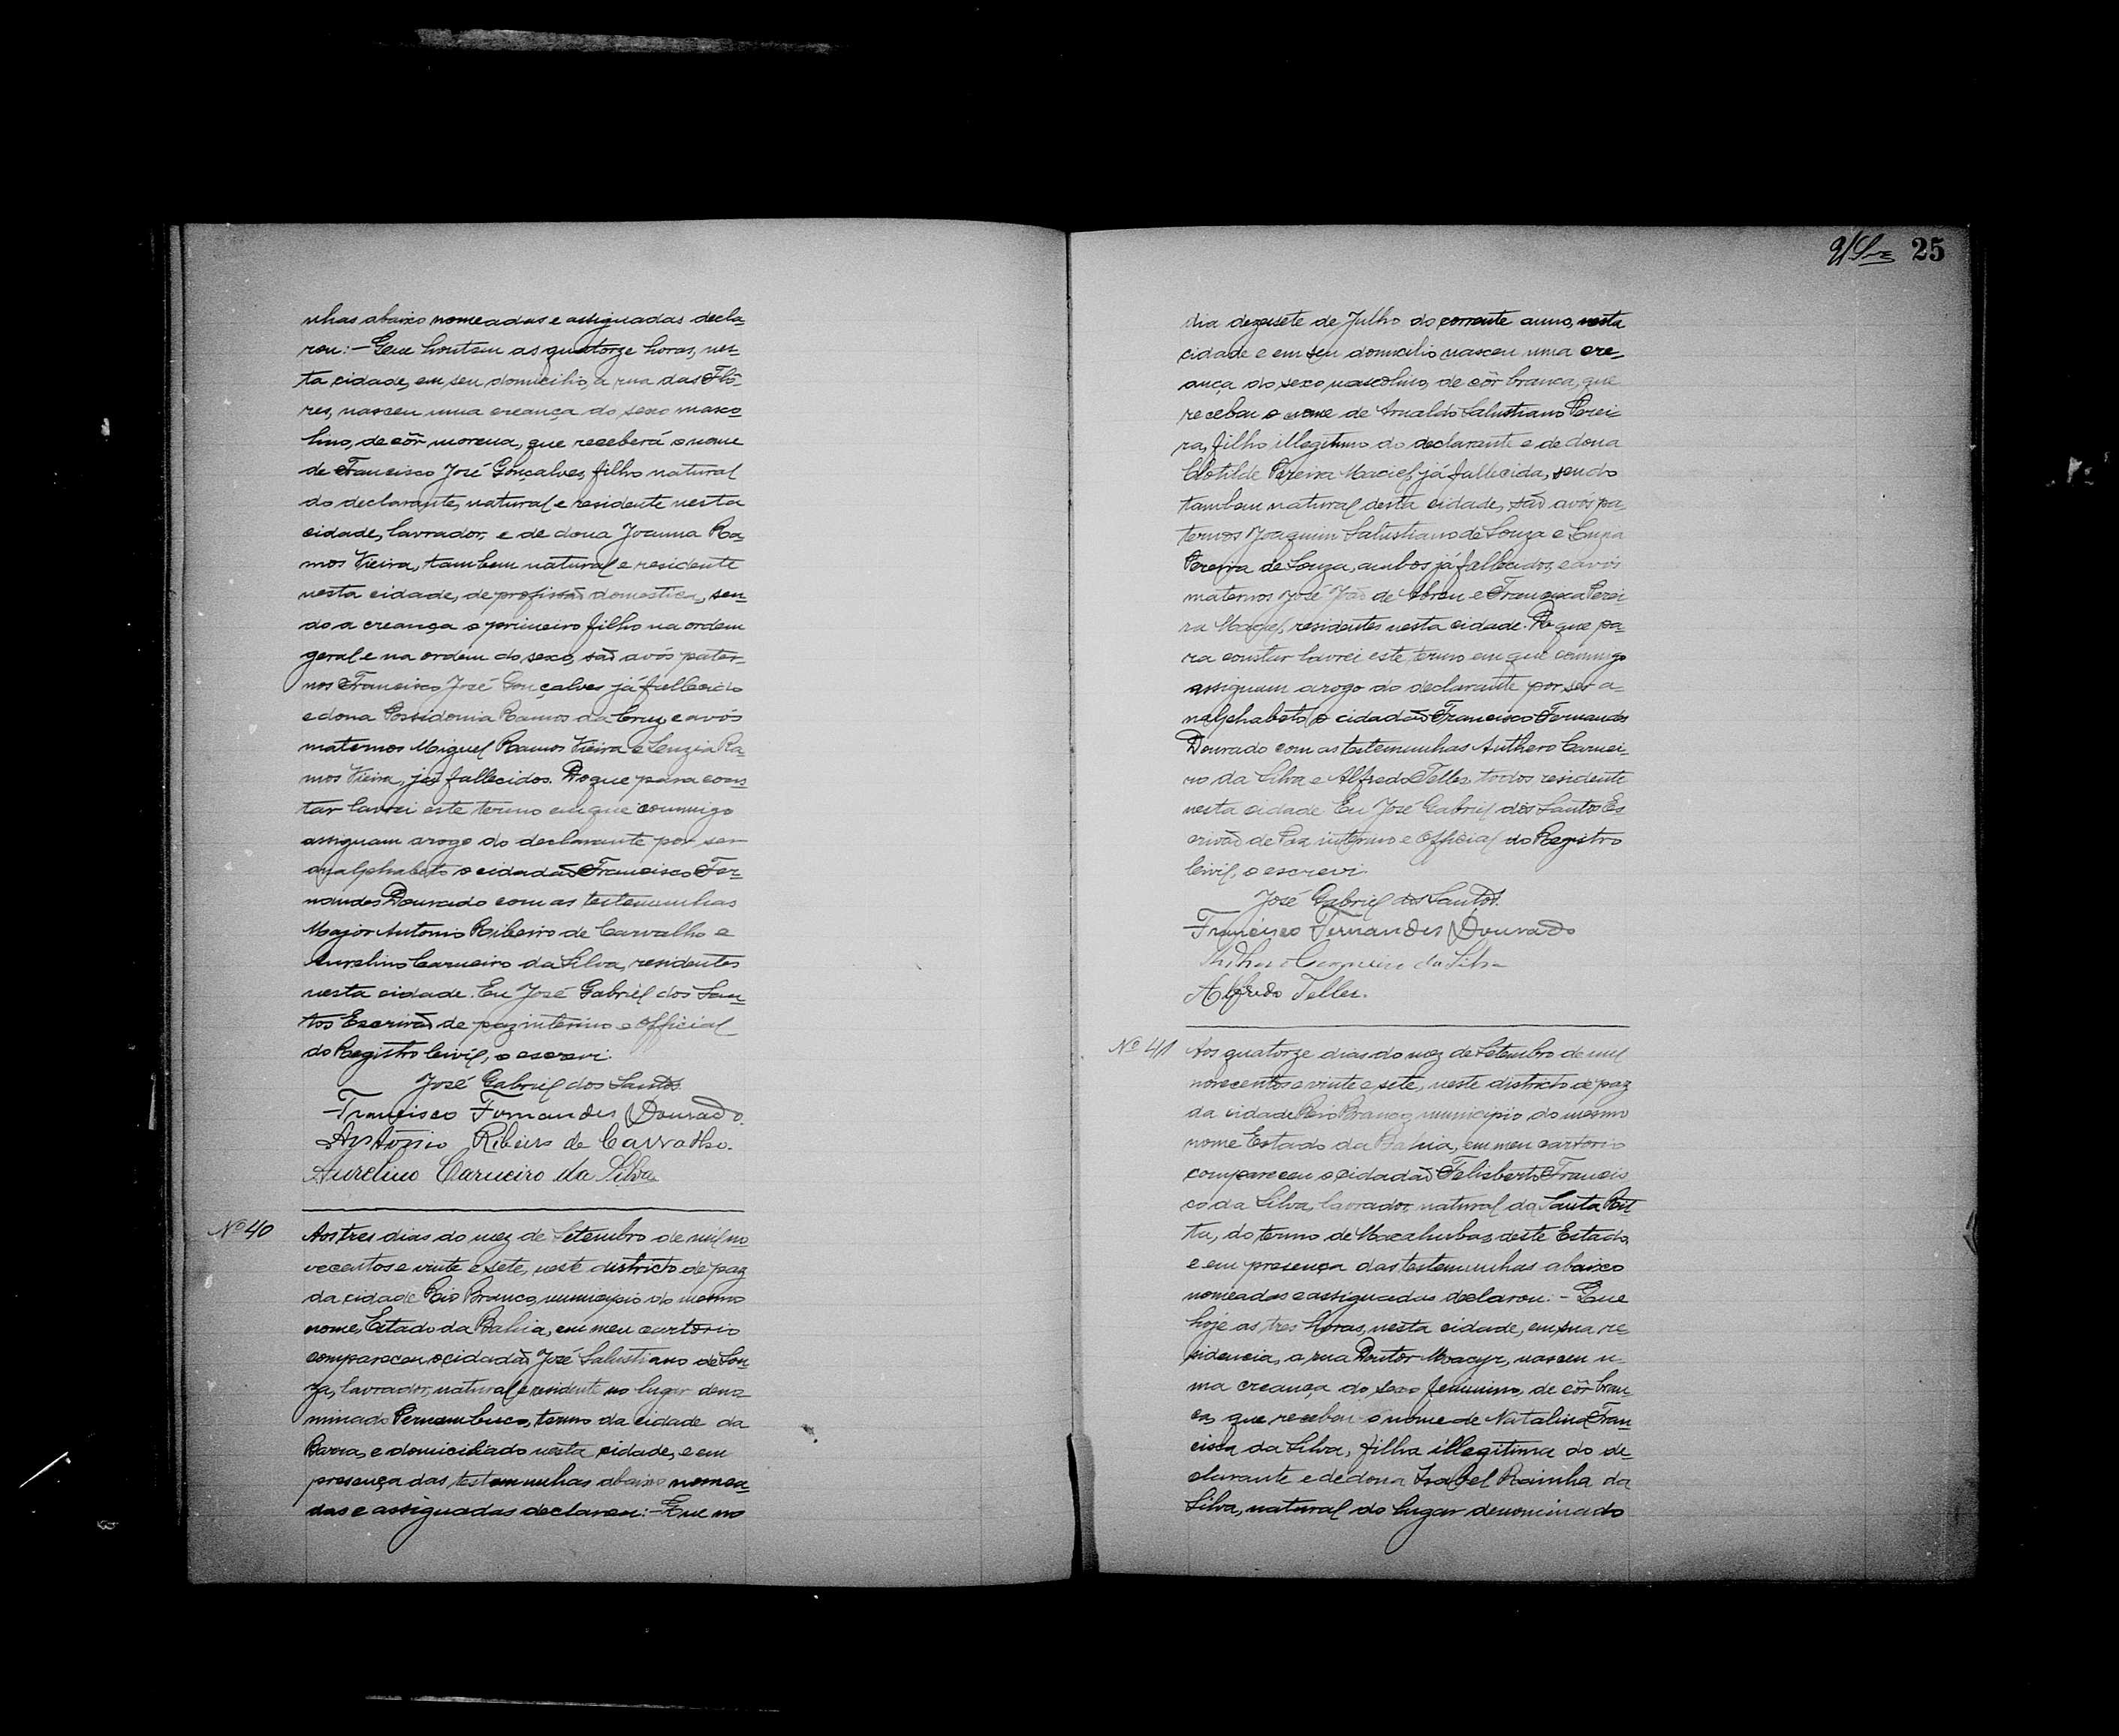 nhas abaixo nomeadas e assignadas decla-
rou:- Que hontem as quatorze horas, nes-
ta cidade, em seu domicilio, a rua das Flô-
res, nasceu uma creança do sexo masco-
lino, de côr morena, que receberá o nome
de Francisco José Gonçalves, filho natural
do declarante, natural e residente nesta
cidade, lavrador, e de dona Joanna Ra-
mos Vieira, tambem natural e residente
nesta cidade, de profissão domestica, sen-
do a creança o primeiro filho na ordem
geral e na ordem do sexo, são avós pater-
nos Francisco José Gonçalves já fallecido
e dona Possidonia Ramos da Cruz, e avós
maternos Miguel Ramos Vieira e Luzia Ra-
mos Vieira, já fallecidos. Do que para cons-
tar lavrei este termo em que commigo
assignam arogo do declarante por ser
analphabeto o cidadão Francisco Fer-
nandes Dourado com as testemunhas
Major Antonio Ribeiro de Carvalho e
Aurelino Carneiro da Silva, residentes
nesta cidade. Eu José Gabriel dos San-
tos Escrivão de paz interino e Official
do Registro Civil, o escrevi.
José Gabriel dos Santos.
Francisco Fernandes Dourado.
Antônio Ribeiro de Carvalho.
Aurelino Carneiro da Silva
Nº 40 Aos tres dias do mez de Setembro de mil no-
vecentos e vinte e sete, neste districto de paz
da cidade Rio Branco, municipio do mesmo
nome, Estado da Bahia, em meu cartorio
compareceu o cidadão José Salustiano de Sou-
za, lavrador, natural e residente no lugar deno-
minado Pernambuco, termo da cidade da
Barra, e domiciliado nesta cidade, e em
presença das testemunhas abaixo nomea-
das e assignadas declarou:- Que no
25
dia dezesete de Julho do corrente anno, nesta
cidade e em seu domicilio nasceu uma cre-
ança do sexo mascolino, de côr branca, que
recebeu o nome de Arnaldo Salustiano Perei-
ra, filho illegitimo do declarante e de dona
Clotilde Pereira Maciel, já fallecida, sendo
tambem natural desta cidade, são avós pa-
ternos Joaquim Salustiano de Souza e Luzia
Pereira de Souza, ambos já fallecidos, e avós
maternos José João de Abreu e Francisca Perei-
ra Maciel, residentes nesta cidade. Do que pa-
ra constar lavrei este termo em que commigo
assignam arogo do declarante por ser a-
nalphabeto, o cidadão Francisco Fernandes
Dourado com as testemunhas Anthero Carnei-
ro da Silva e Alfredo Telles, todos residente
nesta cidade Eu José Gabriel dos Santos Es-
crivão de Paz interino e Official do Registro
Civil, o escrevi.
José Gabriel dos Santos.
Francisco Fernandes Dourado
Anthero Carneiro da Silva
Alfredo Telles.
Nº 41 Aos quatorze dias do mez de Setembro de mil
novecentos e vinte e sete, neste districto de paz
da cidade Rio Branco, municipio do mesmo
nome Estado da Bahia, em meu cartorio
compareceu o cidadão Felisberto Francis-
co da Silva, lavrador, natural da Santa Rit-
ta, do termo de Macahubas, deste Estado,
e em presença das testemunhas abaixo
nomeadas e assignadas declarou:- Que
hoje as tres horas, nesta cidade, em sua re-
sidencia, a rua Doutor Moacyr, nasceu u-
ma creança do sexo feminino, de côr bran-
ca, que recebeu o nome de Natalina Fran-
cisca da Silva, filha illegitima do de-
clarante e de dona Isabel Rainha da
Silva, natural do lugar denominado